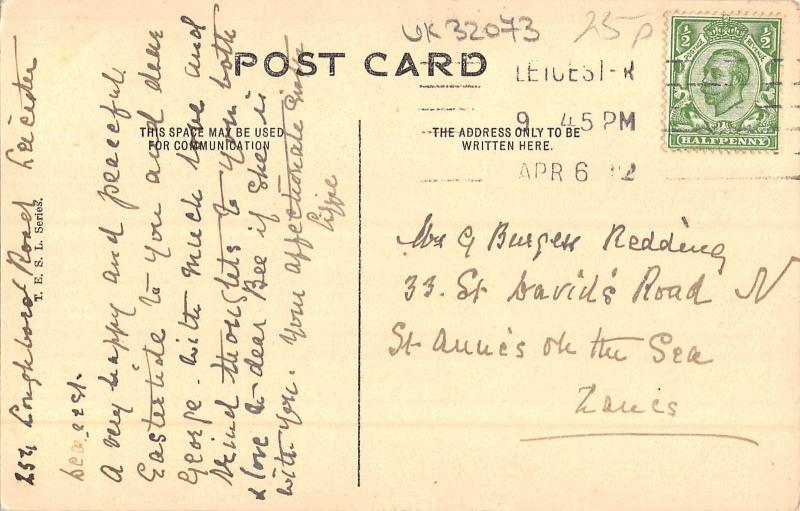 UK32073 25p
POST CARD
THIS SPACE MAY BE USED
FOR COMMUNICATION
THE ADDRESS ONLY TO BE
WRITTEN HERE.
T. E. S. L. Series.
LEICEST R
9 45 PM
APR 6 12
½ ½
POSTAGE REVENUE
HALFPENNY
254 Loughboro' Road Leicester
Dearest.
A very happy and peaceful
Eastertide to you and dear
George. With much love and
kind thoughts to you both
& love to dear Bee if she is
with you. Your affectionate
Lizzie
Mrs G Burgess Redding
33. St David's Road N
St Anne's on the Sea
Lancs